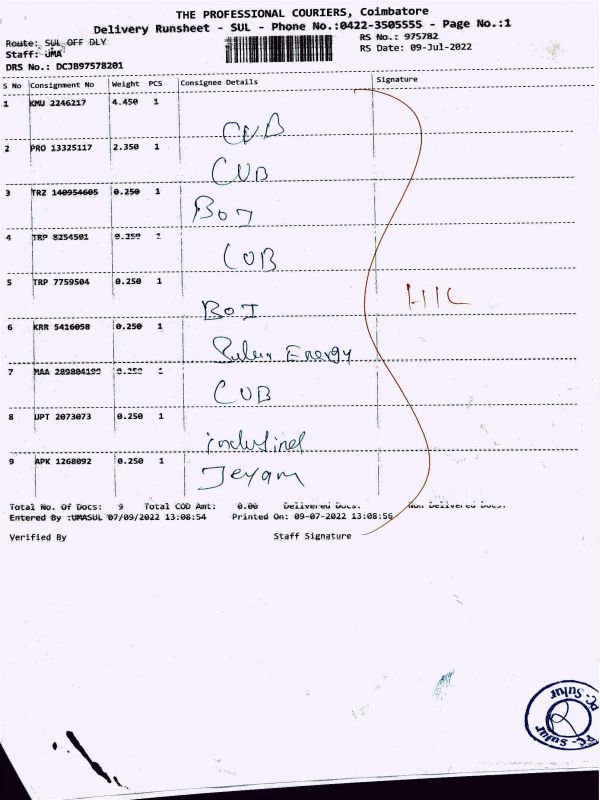 THE PROFESSIONAL COURIERS, Coimbatore
Delivery Runsheet - SUL - Phone No.:0422-3505555 - Page No.:1
Route: SUL OFF DLY
RS No.: 975782
Staff: UMA
RS Date: 09-Jul-2022
DRS No.: DCJB97578201
S No Consignment No Weight PCS Consignee Details Signature
1 KMU 2246217 4.450 1
CUB
2 PRO 13325117 2.350 1
CUB
3 TRZ 140954605 0.250 1
BOI
4 TRP 8254501 0.250 1
CUB
5 TRP 7759504 0.250 1
BOI
HIL
6 KRR 5416058 0.250 1
Energy
7 MAA 289804199 0.250 1
CUB
8 UPT 2073073 0.250 1
9 APK 1268092 0.250 1
Jeyam
Total No. Of Docs: 9 Total COD Amt: 0.00 Delivered Docs: Non Delivered Docs:
Entered By :UMASUL 07/09/2022 13:08:54 Printed On: 09-07-2022 13:08:56
Verified By Staff Signature
PC-Sulur
PC-Sulur